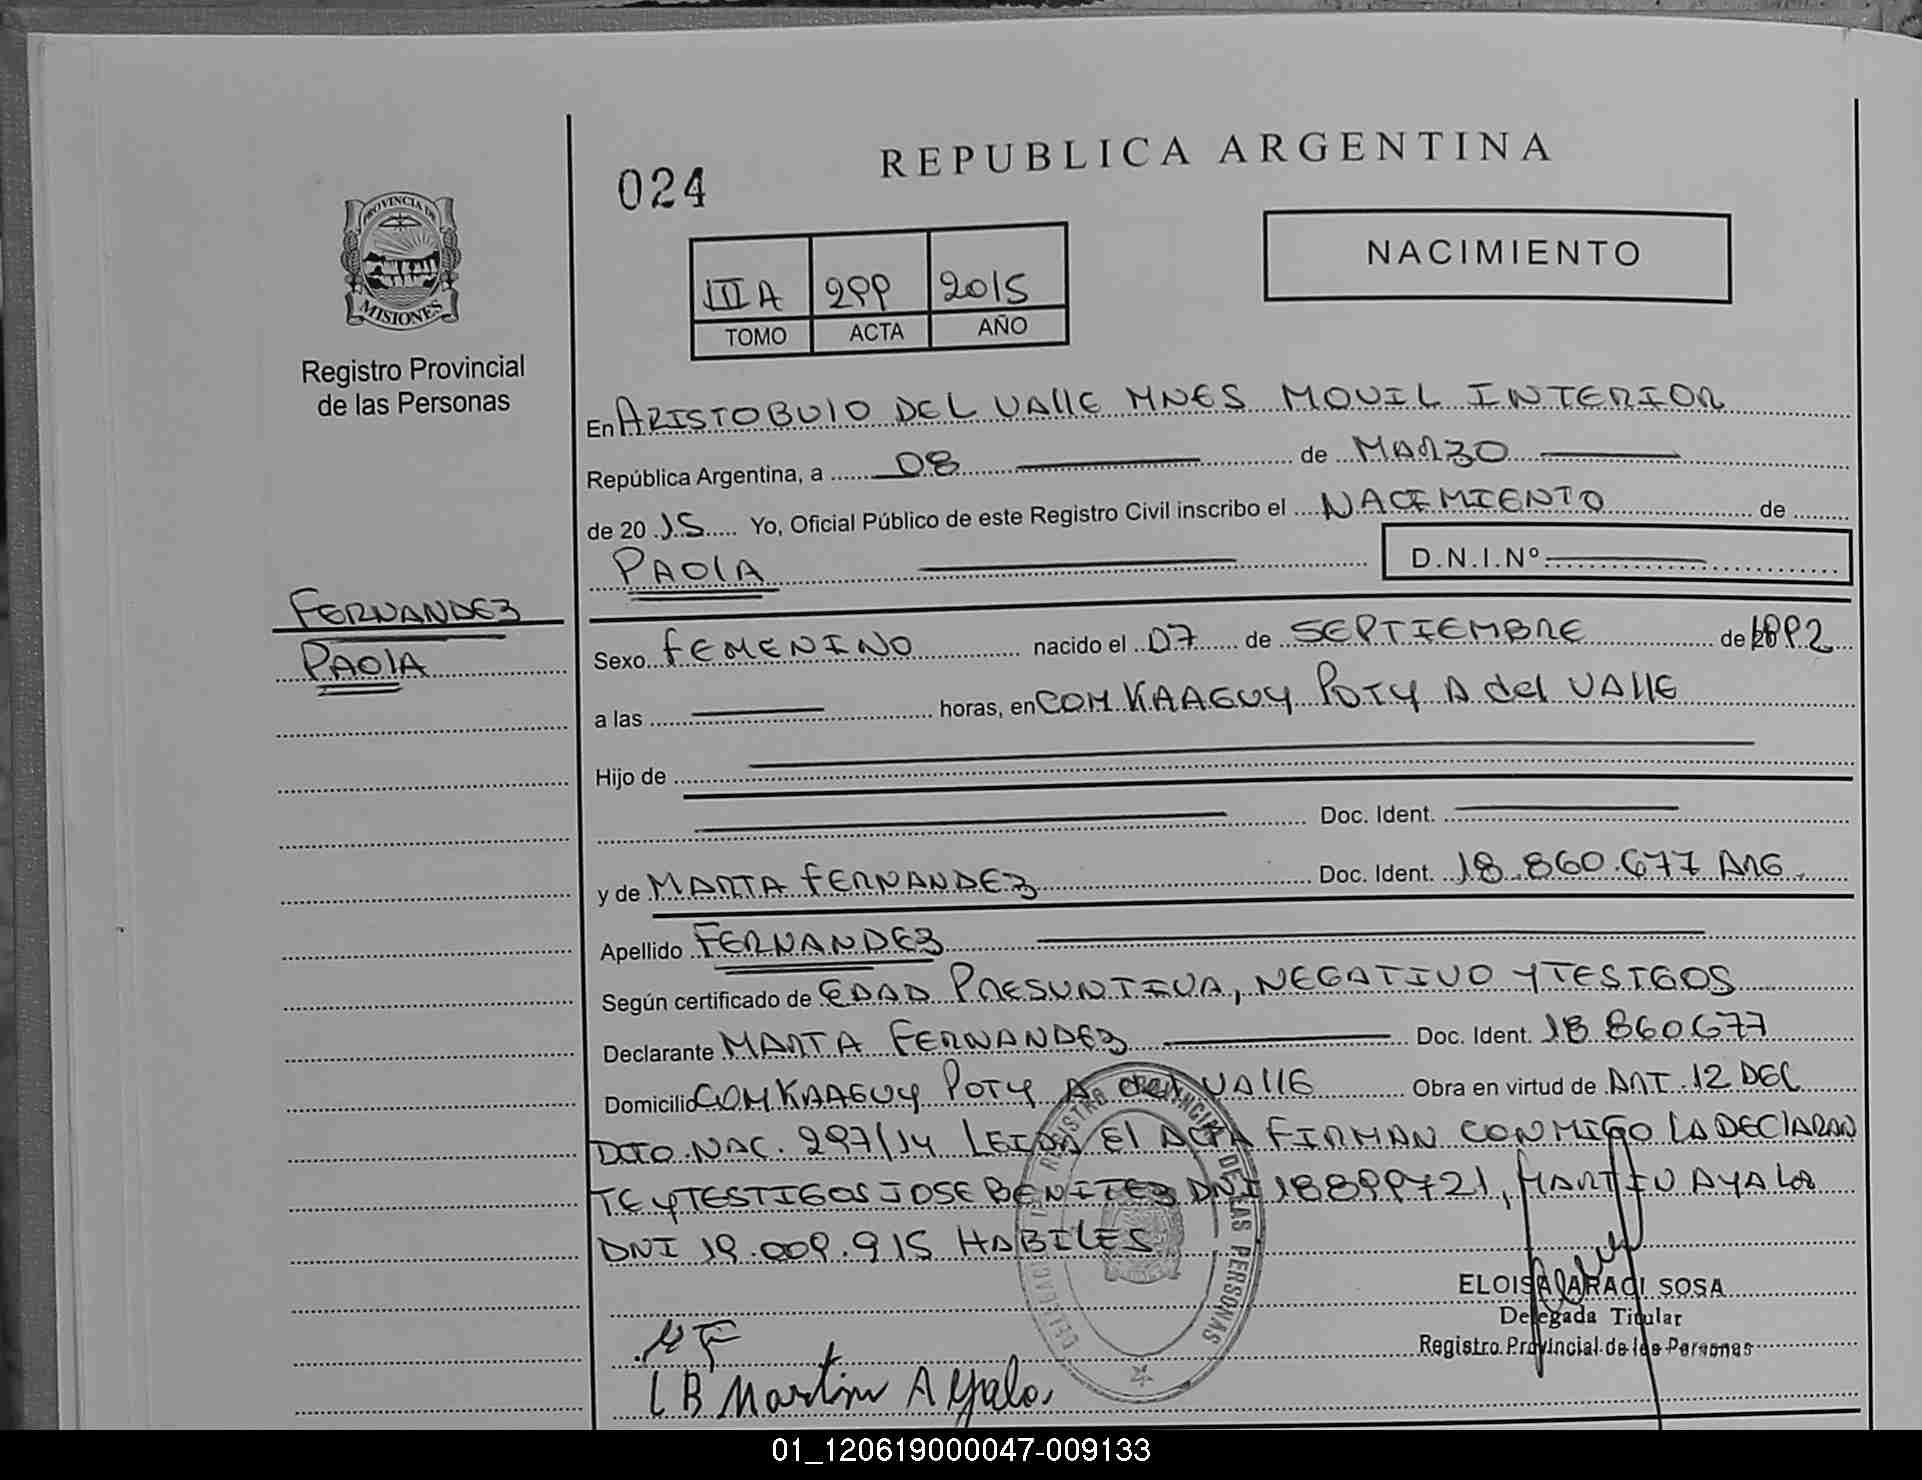 REPUBLICA ARGENTINA
024
NACIMIENTO
PROVINCIA DE
MISIONES
III A 299 2015
TOMO ACTA AÑO
Registro Provincial
de las Personas
En ARISTOBULO DEL VALLE MNES MOVIL INTERIOR
República Argentina, a 08 de MARZO
de 20 15 Yo, Oficial Público de este Registro Civil inscribo el NACIMIENTO de
PAOLA D.N.I.Nº
FERNANDEZ
PAOLA
Sexo FEMENINO nacido el 07 de SEPTIEMBRE de 1992
a las horas, en COM KAAGUY POTY A del VALLE
Hijo de
Doc. Ident.
y de MARTA FERNANDEZ Doc. Ident. 18.860.677 ARG.
Apellido FERNANDEZ
Según certificado de EDAD PRESUNTIVA, NEGATIVO Y TESTIGOS
Declarante MARTA FERNANDEZ Doc. Ident. 18.860.677
Domicilio COM KAAGUY POTY A del VALLE Obra en virtud de ART. 12 DEC
DTO. NAC. 297/14 LEIDA El ACTA FIRMAN CONMIGO LA DECLARAN
TE Y TESTIGOS JOSE BENITEZ DNI 18899721, MARTIN AYALA
DNI 19.009.915 HABILES
ELOISA ARACI SOSA
Delegada Titular
Registro Provincial de las Personas
M F
L B Martin Ayala
01_120619000047-009133